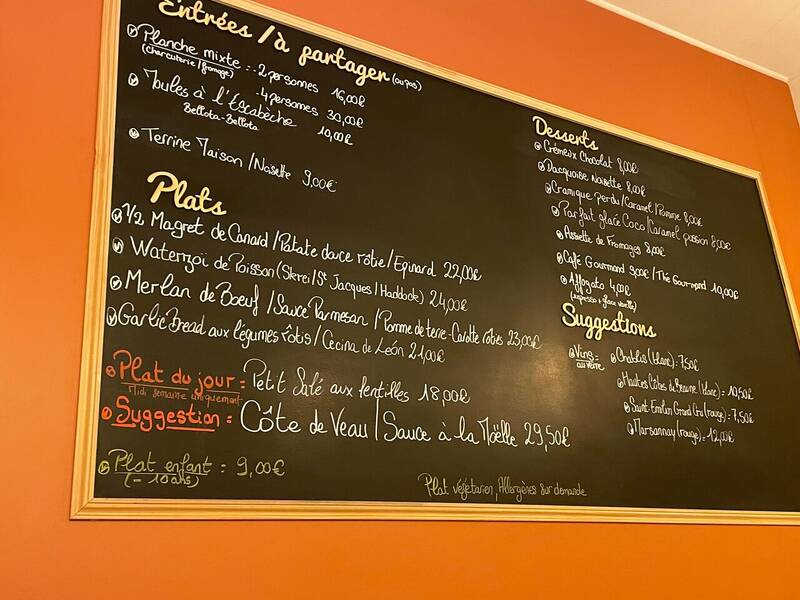 Entrées / à partager (ou pas)
Planche mixte : - 2 personnes 16,00€
(charcuterie/fromage)
- 4 personnes 30,00€
Moules à l'Escabèche 10,00€
Bellota-Bellota
Terrine Maison / Noisette 9,00€
Plats
1/2 Magret de Canard / Patate douce rôtie / Epinard 22,00€
Waterzoi de Poisson (Skrei / St Jacques / Haddock) 24,00€
Merlan de Boeuf / Sauce Parmesan / Pomme de terre-Carotte rôties 23,00€
Garlic Bread aux légumes rôtis / Cecina de León 21,00€
Plat du jour : Petit Salé aux lentilles 18,00€
Midi semaine uniquement
Suggestion : Côte de Veau / Sauce à la Moëlle 29,50€
Plat enfant : 9,00€
(- 10 ans)
Plat végétarien, Allergènes sur demande
Desserts
Crémeux Chocolat 8,00€
Dacquoise Noisette 8,00€
Cramique perdu / Caramel / Pomme 8,00€
Parfait glacé Coco / Caramel passion 8,00€
Assiette de Fromages 9,00€
Café Gourmand 9,00€ / Thé Gourmand 10,00€
Affogato 4,00€
(espresso + glace vanille)
Suggestions
Vins : au verre
Chablis (blanc) : 7,50€
Hautes Côtes de Beaune (blanc) : 10,50€
Saint-Emilion Grand Cru (rouge) : 7,50€
Marsannay (rouge) : 12,00€